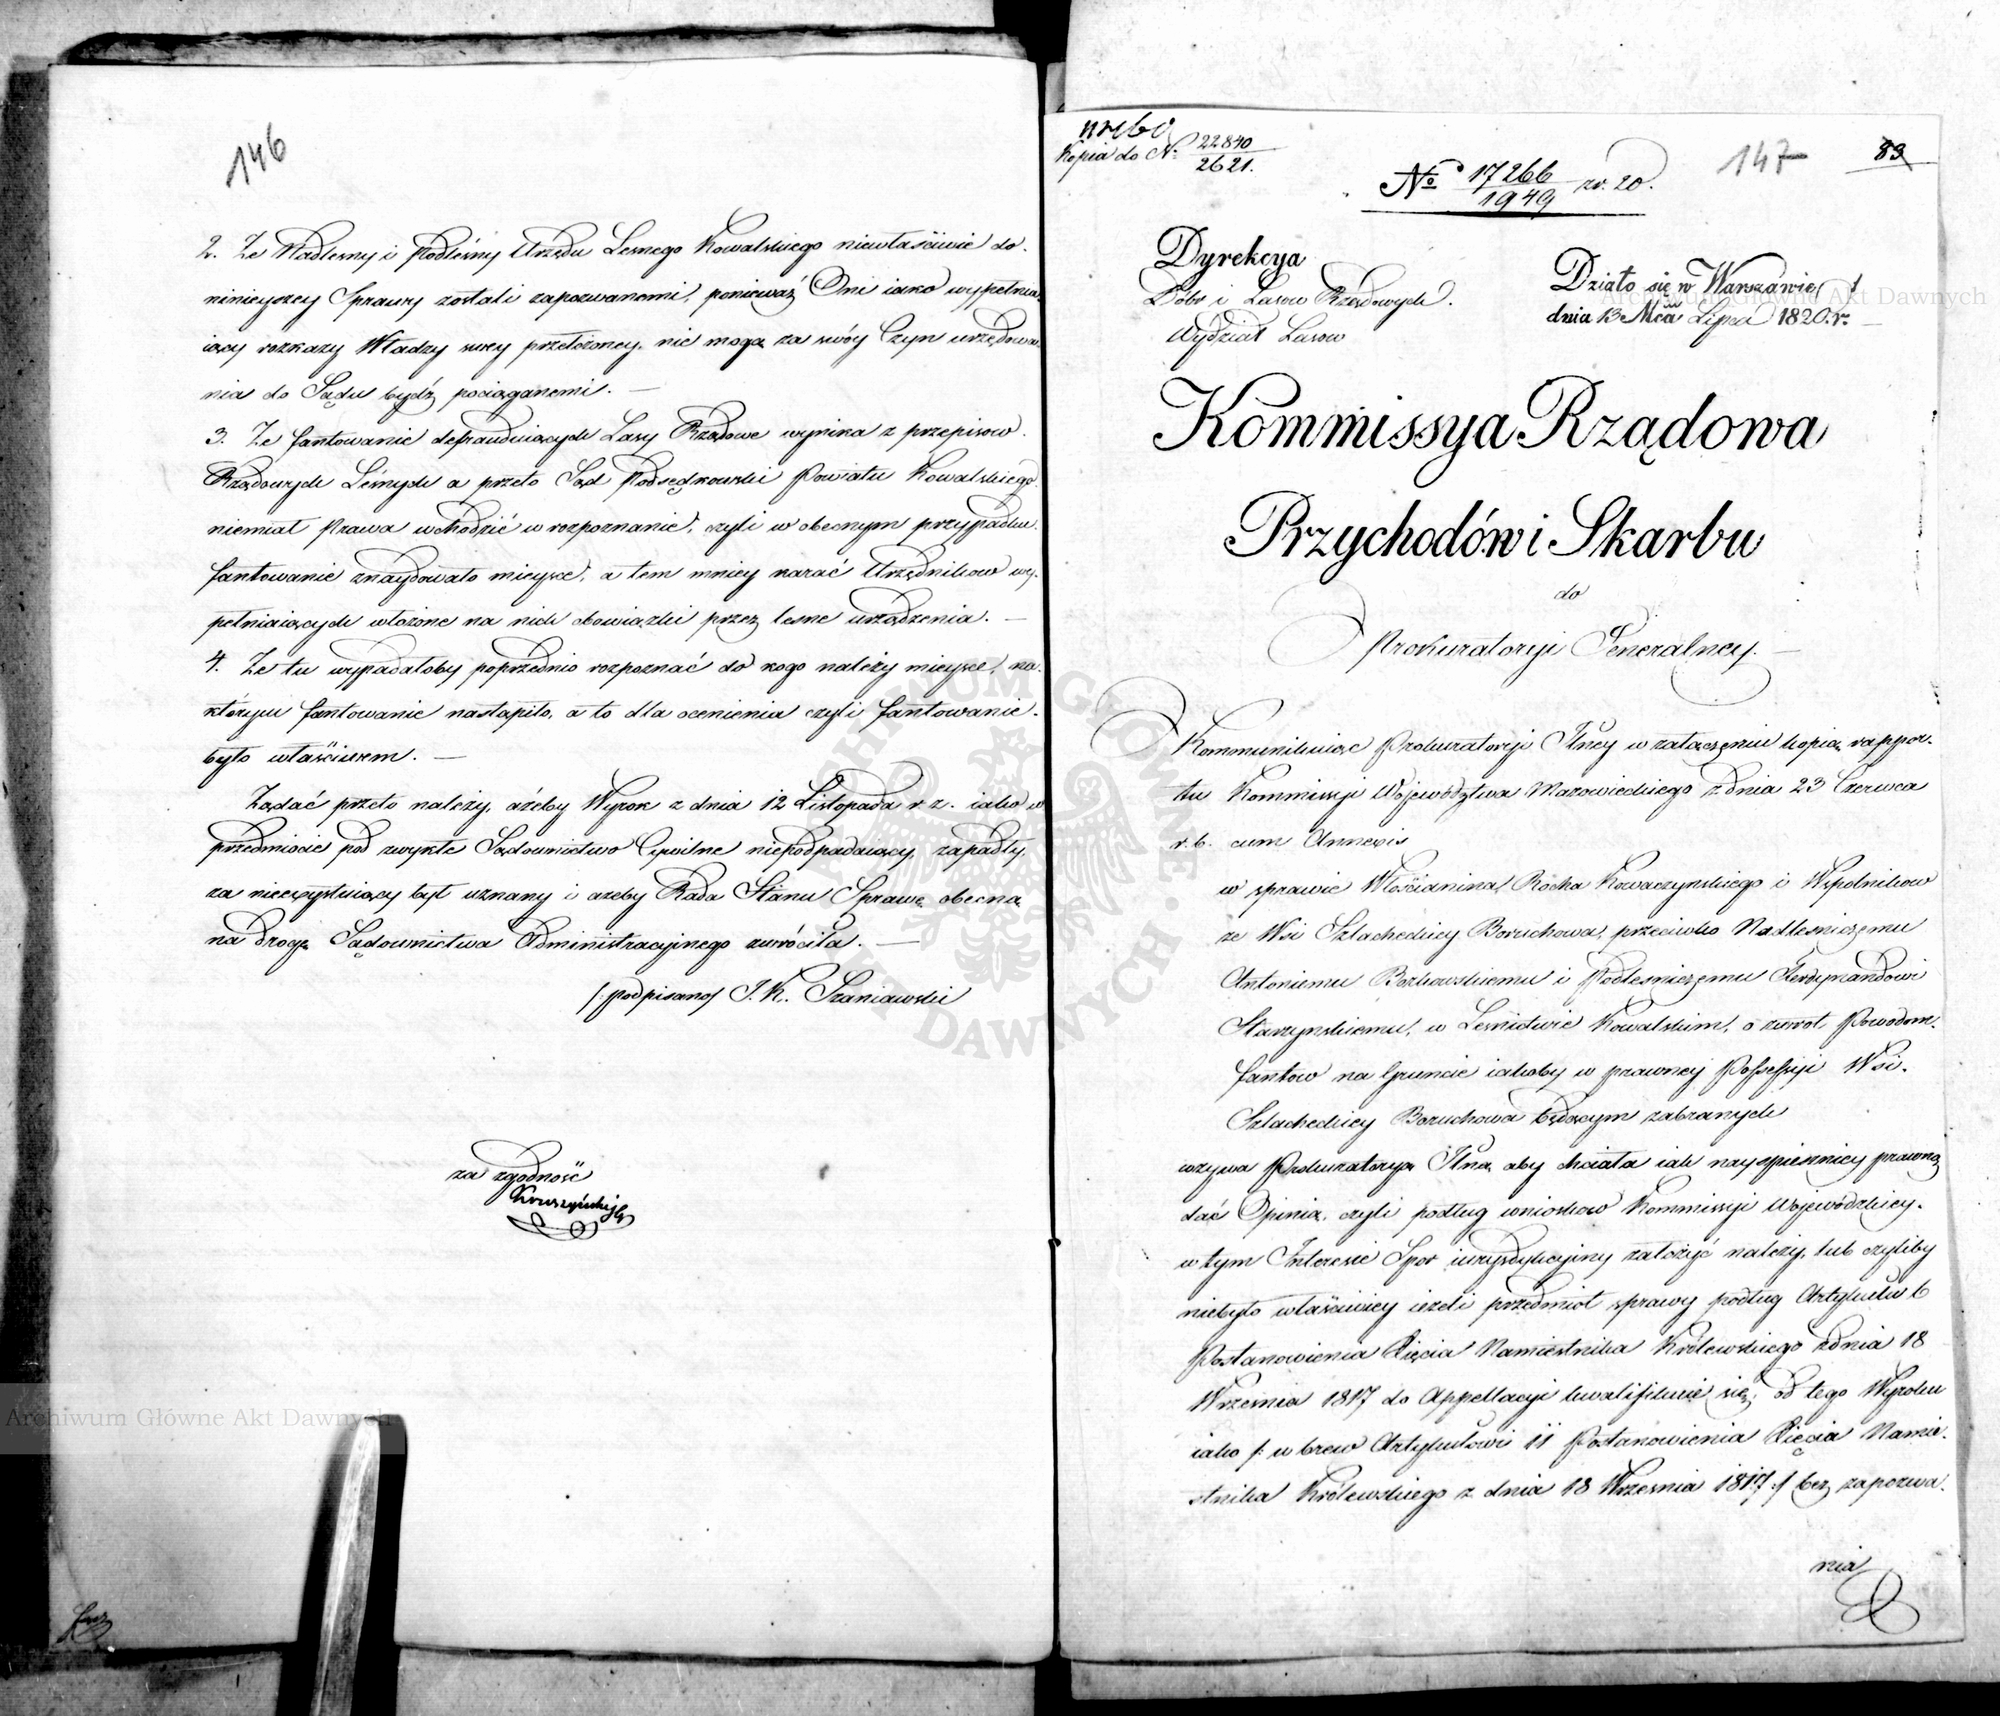 146
2. Ze Nadleśny i Podleśny Urzędu Leśnego Kowalskiego niewłaściwie do
ninieyszey Sprawy zostali zapozwanemi, ponieważ Oni iako wypełnia-
iący rozkazy Władzy swey przełożoney, nie mogą za swóy Czyn urzędowa-
nia do Sądu bydź pociąganemi. —
3. Ze fantowanie defrauduiących Lasy Rządowe wynika z przepisow
Rządowych Leśnych a przeto Sąd Podsędkowski Powiatu Kowalskiego
niemiał Prawa wchodzić w rozpoznanie, czyli w obecnym przypadku
fantowanie znaydowało mieysce, a tem mniey karać Urzędnikow wy-
pełniaiących włożone na nich obowiązki przez leśne urządzenia. —
4. Ze tu wypadałoby poprzednio rozpoznać do kogo należy mieysce, na
którym fantowanie nastąpiło, a to dla ocenienia czyli fantowanie
było właściwem. —
Żądać przeto należy, ażeby Wyrok z dnia 12 Listopada r. z. iako w
przedmiocie pod zwykłe Sądownictwo Cywilne niepodpadaiący, zapadły,
za nieexystuiący był uznany i ażeby Rada Stanu Sprawę obecną
na drogę Sądownictwa Administracyjnego zwróciła. —
/:podpisano/ J. K. Szaniawski
za zgodność
Kopia do No 22840
2621.
No 17266
1949 zr. 20.
147
83
Dyrekcya
Dóbr i Lasow Rządowych.
Wydział Lasow
Działo się w Warszawie
dnia 13 Mca Lipca 1820. r.
Kommissya Rządowa
Przychodów i Skarbu
do
Prokuratoryi Generalney. —
Kommunikuiąc Prokuratoryi Glney w załączeniu kopią rappor-
tu Kommissyi Województwa Mazowieckiego z dnia 23 Czerwca
r. b. cum Annexis
w sprawie Włościanina Rocha Kowaczynskiego i Wspolnikow
ze Wsi Szlacheckiey Boruchowa, przeciwko Nadlesniczemu
Antoniemu Borkowskiemu i Podlesniczemu Ferdynandowi
Starzynskiemu, w Lesnictwie Kowalskim, o zwrot Powodom
fantow na Gruncie iakoby w prawney Possessyi Wsi
Szlacheckiey Boruchowa będącym zabranych
wzywa Prokuratoryą Glną aby chciała iak nayspieszniey prawną
dać Opinią, czyli podług wniosków Kommissyi Województkiey
w tym Interesie Spor iurysdykcyiny założyć należy, lub czyliby
niebyło właściwiey ieżeli przedmiot sprawy podług Artykułu 6
Postanowienia Xięcia Namiestnika Królewskiego z dnia 18
Września 1817 do Appellacyi kwalifikuie się, od tego Wyroku
iako /: w brew Artykułowi 11 Postanowienia Xięcia Namie-
stnika Królewskiego z dnia 18 Września 1817 :/ bez zapozwa-
nia
Archiwum Główne Akt Dawnych
Archiwum Główne Akt Dawnych
ARCHIWUM GŁÓWNE AKT DAWNYCH